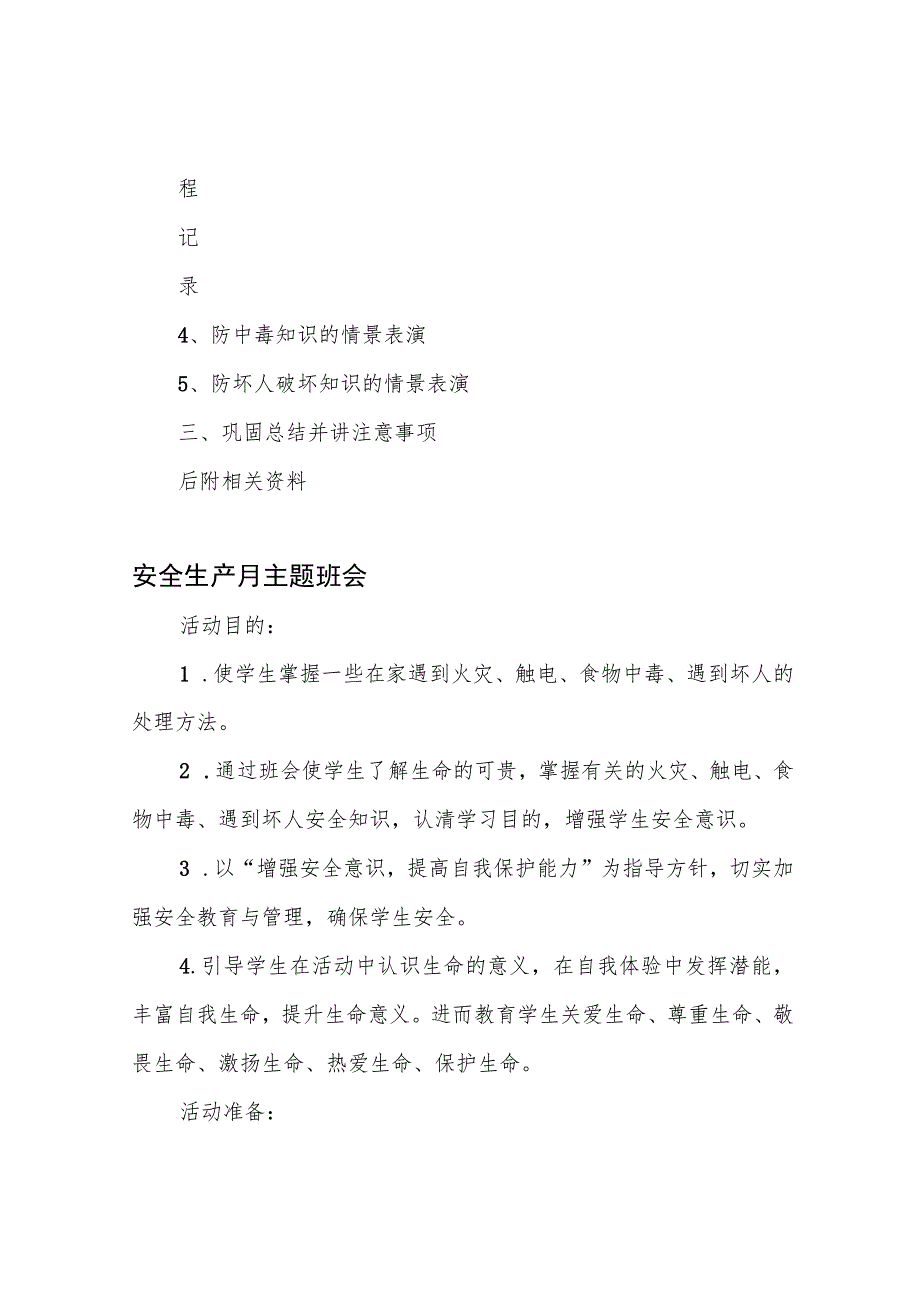 程
记
录
4、防中毒知识的情景表演
5、防坏人破坏知识的情景表演
三、巩固总结并讲注意事项
后附相关资料
安全生产月主题班会
活动目的：
1 .使学生掌握一些在家遇到火灾、触电、食物中毒、遇到坏人的
处理方法。
2 .通过班会使学生了解生命的可贵，掌握有关的火灾、触电、食
物中毒、遇到坏人安全知识，认清学习目的，增强学生安全意识。
3 .以“增强安全意识，提高自我保护能力”为指导方针，切实加
强安全教育与管理，确保学生安全。
4.引导学生在活动中认识生命的意义，在自我体验中发挥潜能，
丰富自我生命，提升生命意义。进而教育学生关爱生命、尊重生命、敬
畏生命、激扬生命、热爱生命、保护生命。
活动准备：